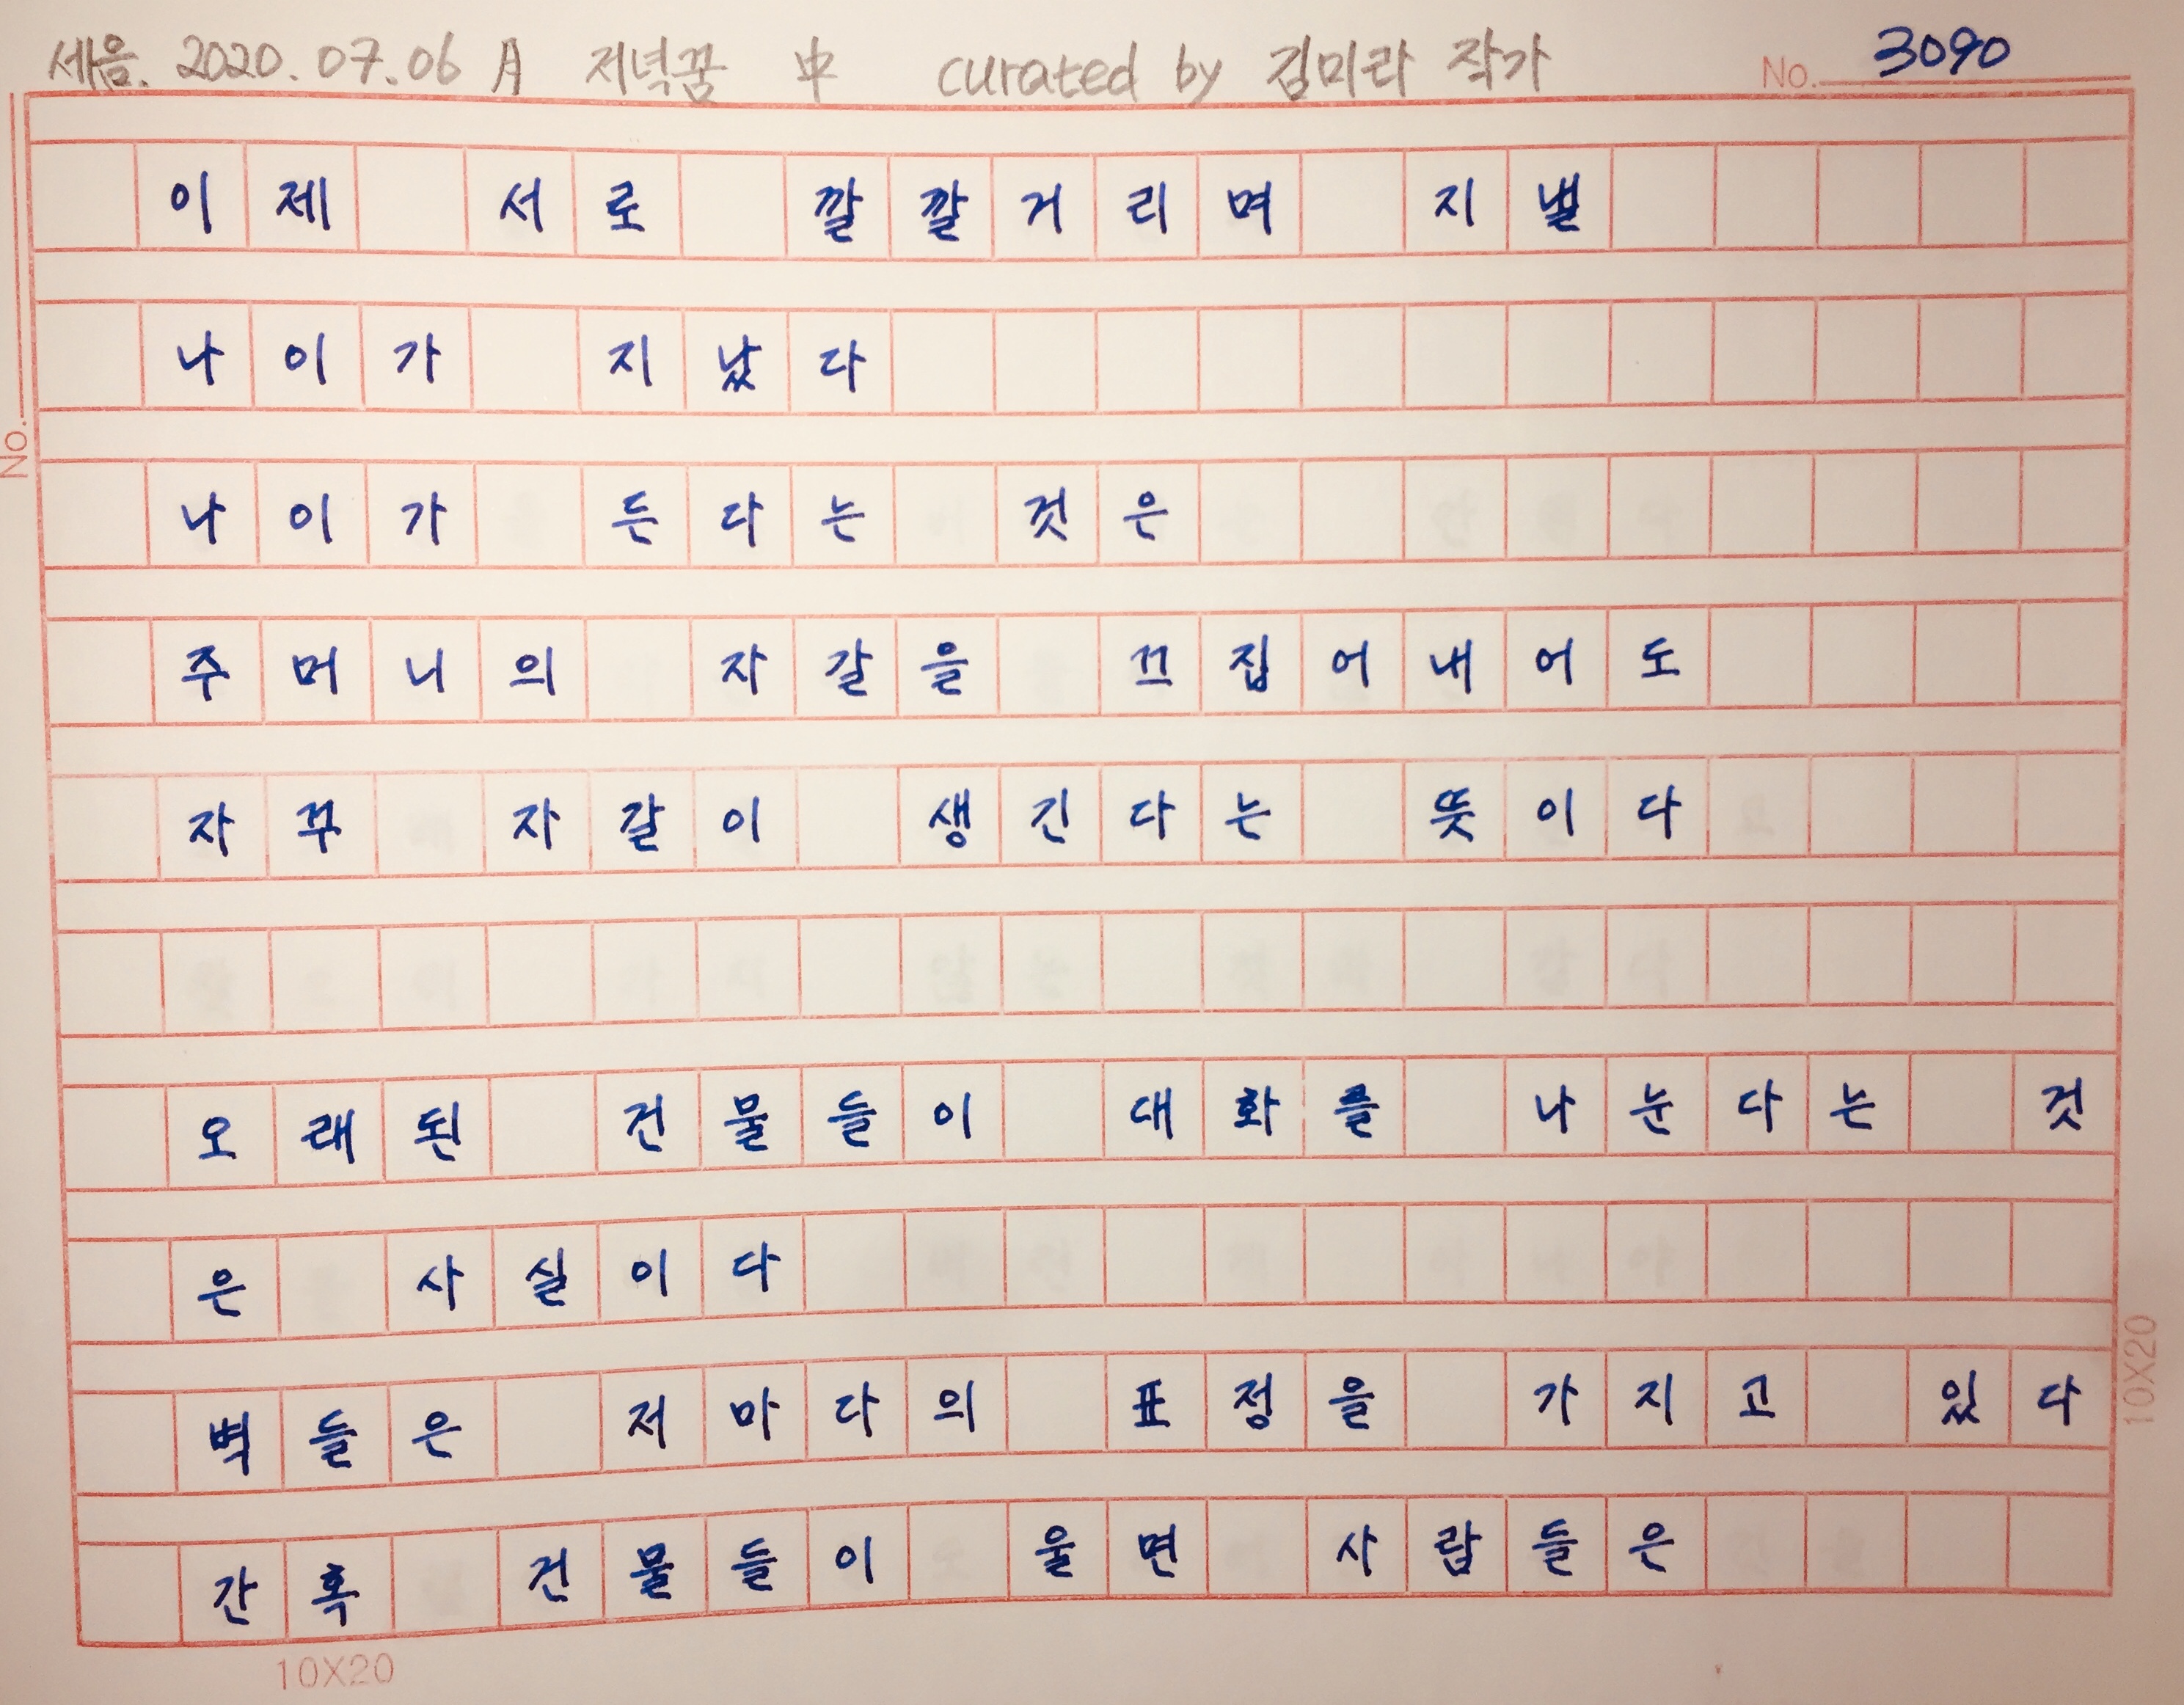 세음. 2020.07.06 月 저녁꿈 中 curated by 김미라 작가 No. 3090
이제 서로 깔깔거리며 지낼
나이가 지났다
No.
나이가 든다는 것은
주머니의 자갈을 끄집어내어도
자꾸 자갈이 생긴다는 뜻이다
오래된 건물들이 대화를 나눈다는 것
은 사실이다
벽들은 저마다의 표정을 가지고 있다
10X20
간혹 건물들이 울면 사람들은
10X20